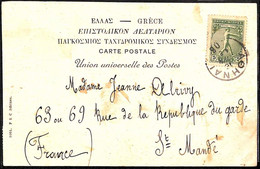 ΕΛΛΑΣ — GRÈCE
ΕΠΙΣΤΟΛΙΚΟΝ ΔΕΛΤΑΡΙΟΝ
ΠΑΓΚΟΣΜΙΟΣ ΤΑΧΥΔΡΟΜΙΚΟΣ ΣΥΝΔΕΣΜΟΣ
CARTE POSTALE
Union universelle des Postes
Madame Jeanne
63 ou 69 Rue de la République du garde
St Mandé
(France)